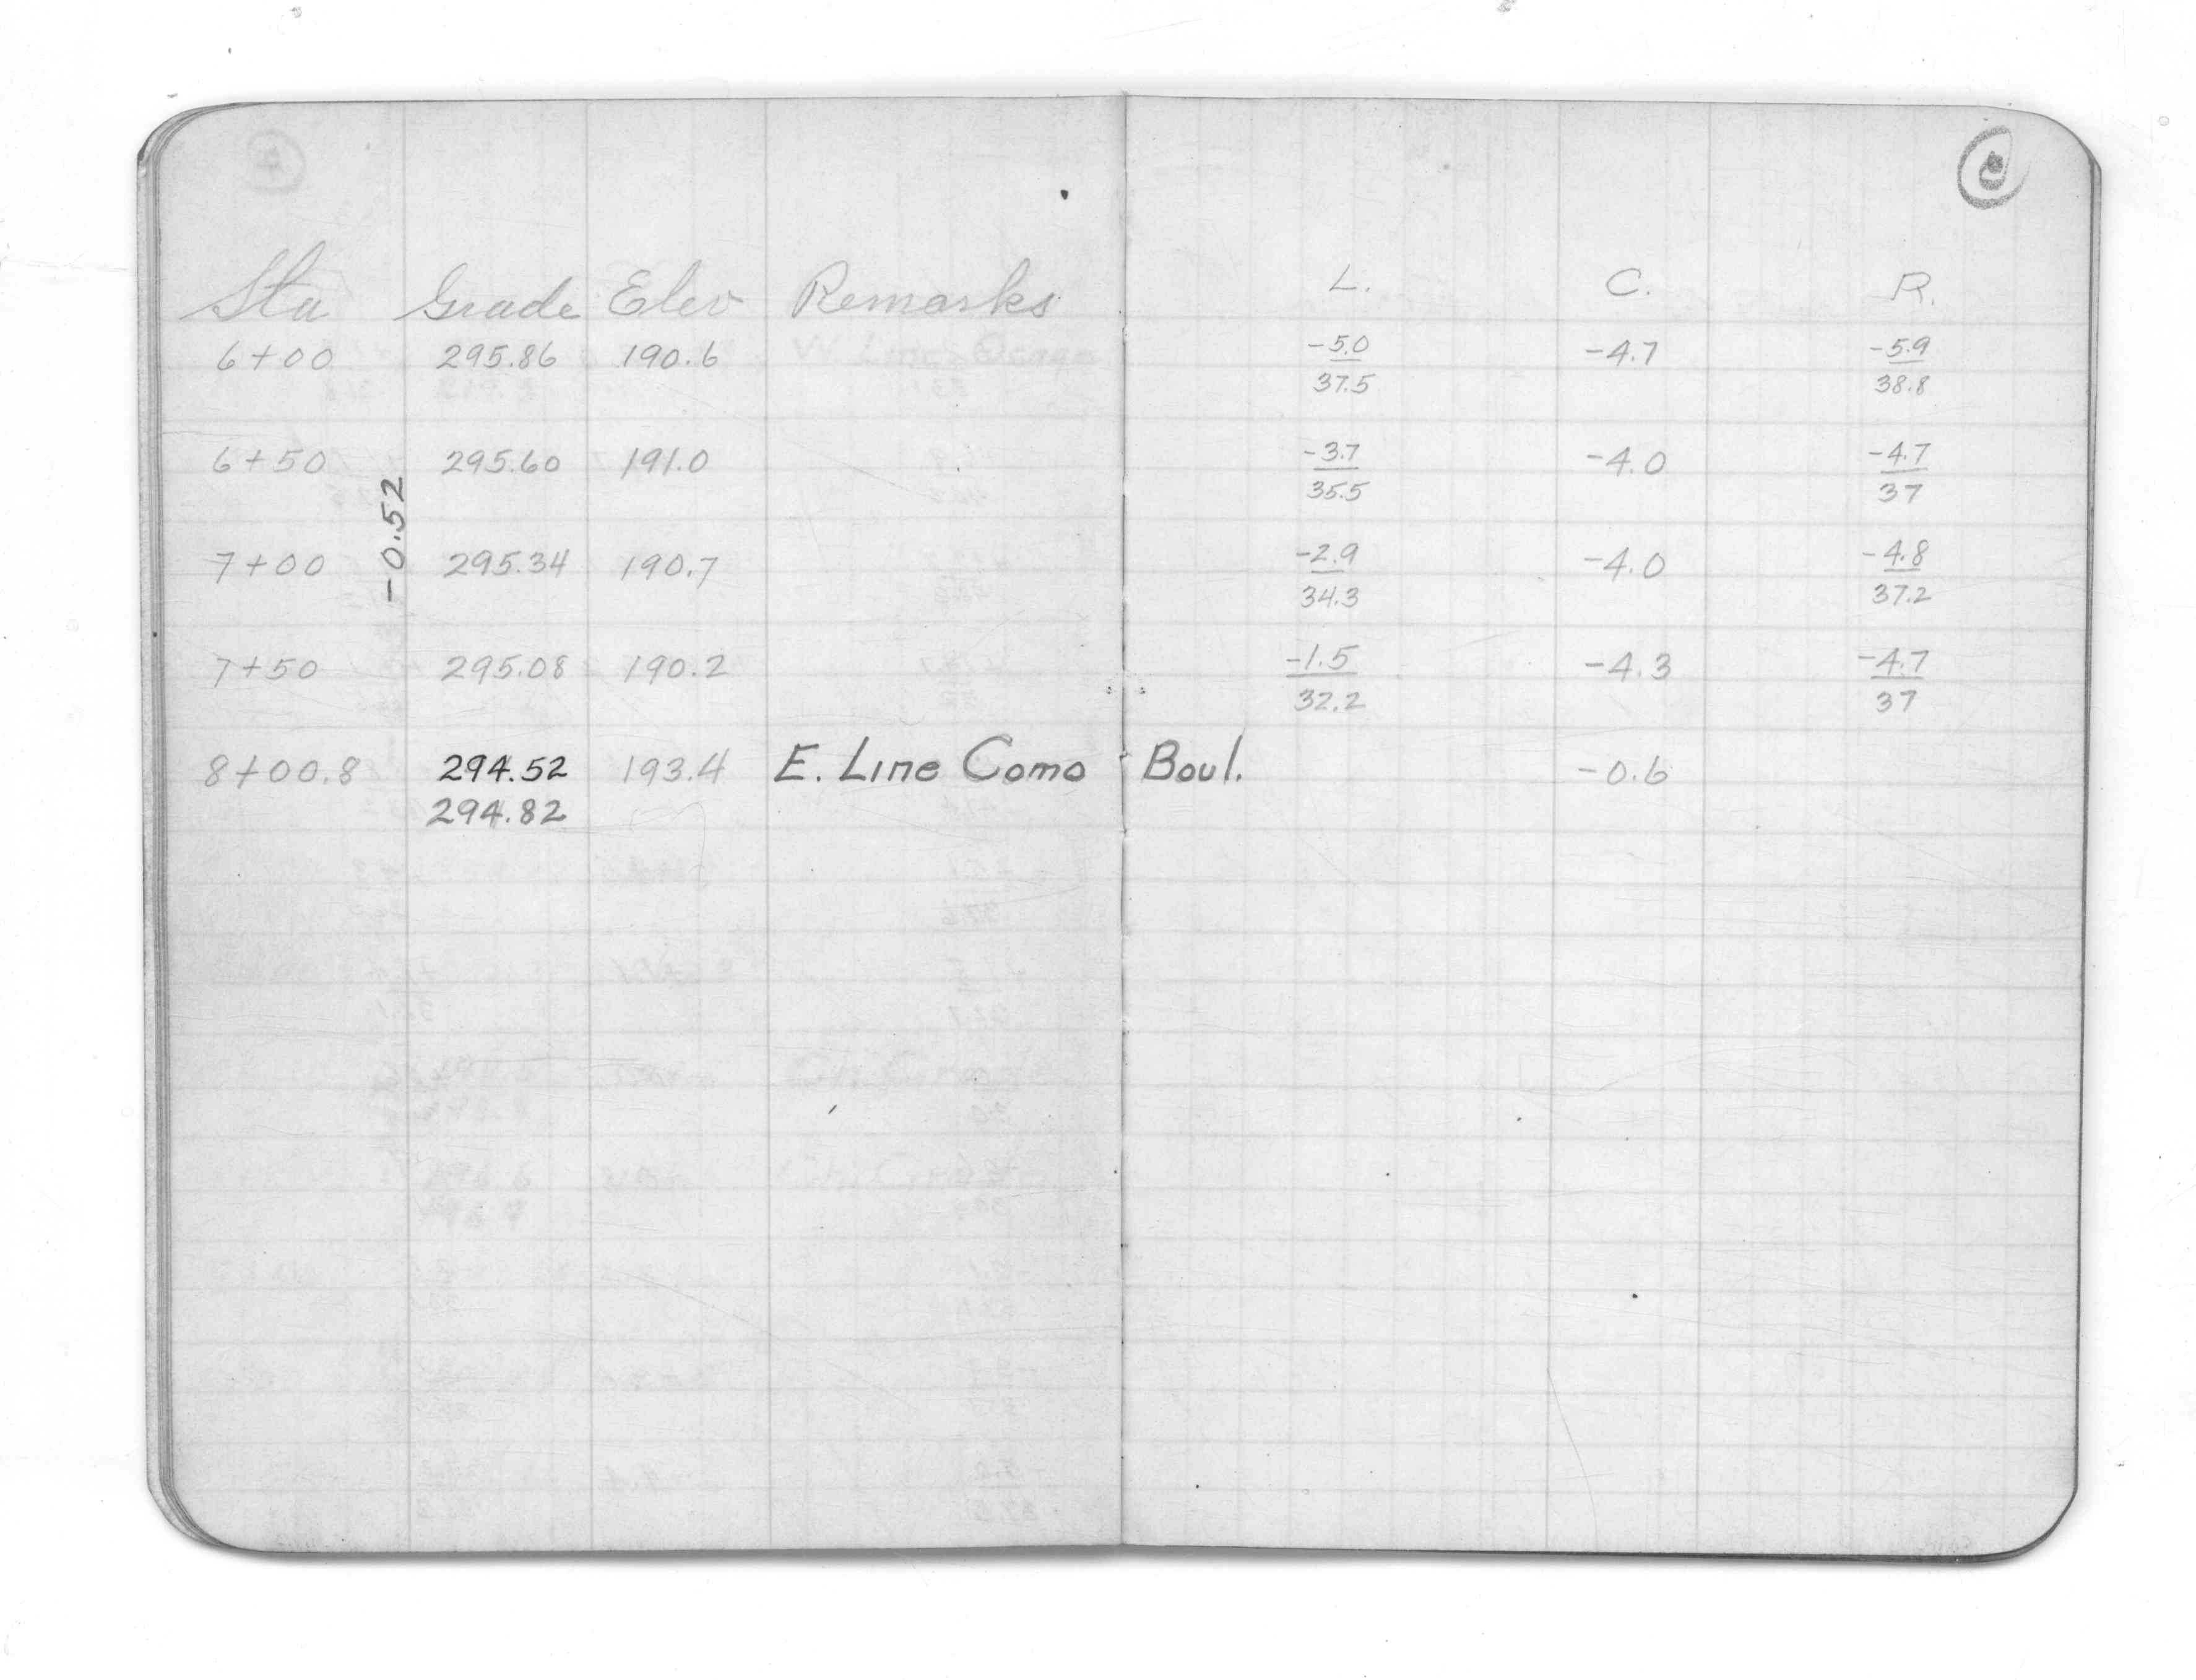 Sta Grade Elev Remarks L. C. R.
6+00 295.86 190.6 W. Line -5.0 -4.7 -5.9
37.5 38.8
6+50 295.60 191.0 -3.7 -4.0 -4.7
35.5 37
-0.52
7+00 295.34 190.7 -2.9 -4.0 -4.8
34.3 37.2
7+50 295.08 190.2 -1.5 -4.3 -4.7
32.2 37
8+00.8 294.52 193.4 E. Line Como Boul. -0.6
294.82